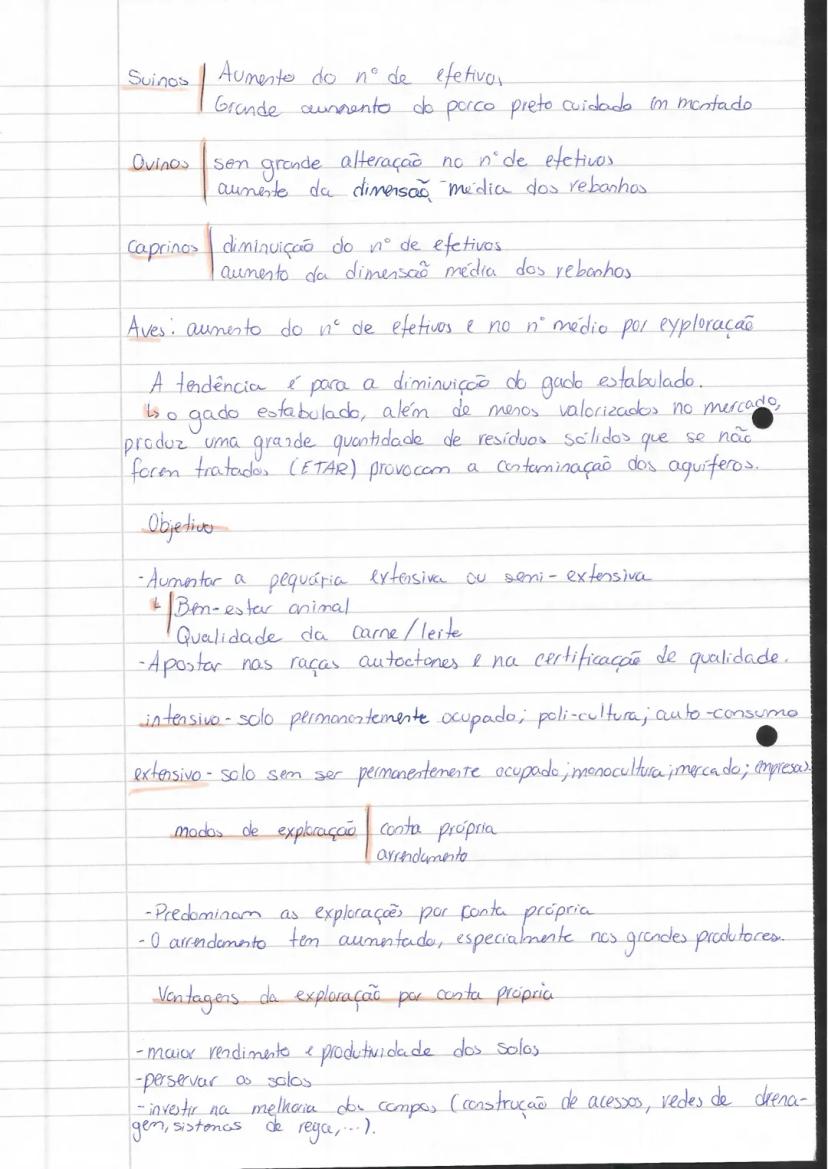 Suinos | Aumento do nº de efetivos
Grande aumento do porco preto cuidado em montado
Ovinos | sem grande alteração no nº de efetivos
aumento da dimensão média dos rebanhos
Caprinos | diminuição do nº de efetivos
aumento da dimensão média dos rebanhos
Aves: aumento do nº de efetivos e no nº médio por exploração
A tendência é para a diminuição do gado estabulado.
↳ o gado estabulado, além de menos valorizados no mercado,
produz uma grande quantidade de resíduos sólidos que se não
forem tratados (ETAR) provocam a contaminação dos aquíferos.
Objetivo
-Aumentar a pequária extensiva ou semi-extensiva
↳ | Bem-estar animal
Qualidade da carne/leite
-Apostar nas raças autoctones e na certificação de qualidade.
intensivo - solo permanentemente ocupado; poli-cultura; auto-consumo
extensivo - solo sem ser permanentemente ocupado; monocultura; mercado; (empresa).
modos de exploração | conta própria
arrendamento
-Predominam as explorações por conta própria
-O arrendamento tem aumentado, especialmente nos grandes produtores.
Vantagens da exploração por conta própria
-maior rendimento e produtividade dos solos
-perservar os solos
-investir na melhoria dos campos (construção de acessos, redes de drena-
gem, sistemas de rega,...).